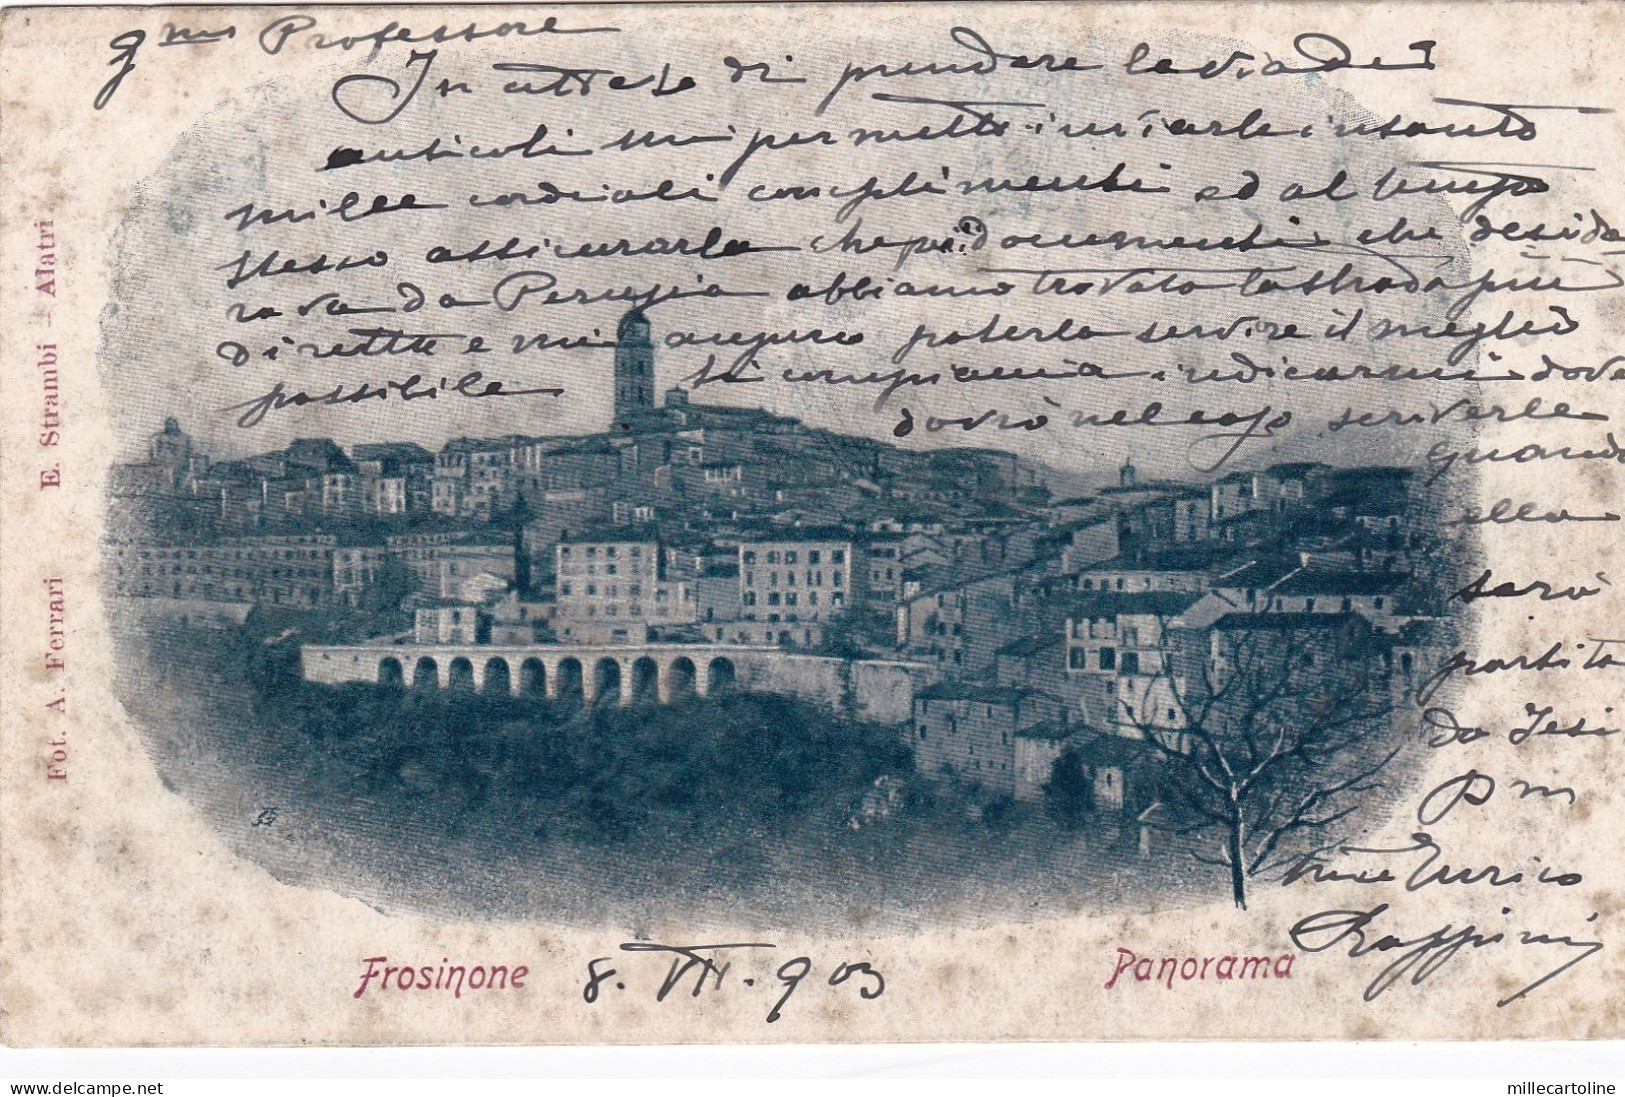 Professore
In attesa di prendere la via dei
mi permetto inviarle intanto
mille cordiali complimenti ed al tempo
stesso assicurarla che documenti che deside
rava da Perugia abbiamo trovato la strada più
diretta e mi auguro poterla servire il meglio
possibile Si compiaccia indicarmi dove
dovrò nel caso scriverle
quando
ella
sarà
partita
da Jesi
Enrico
8. VII. 903
Frosinone
Panorama
Fot. A. Ferrari E. Strambi – Alatri
millecartoline